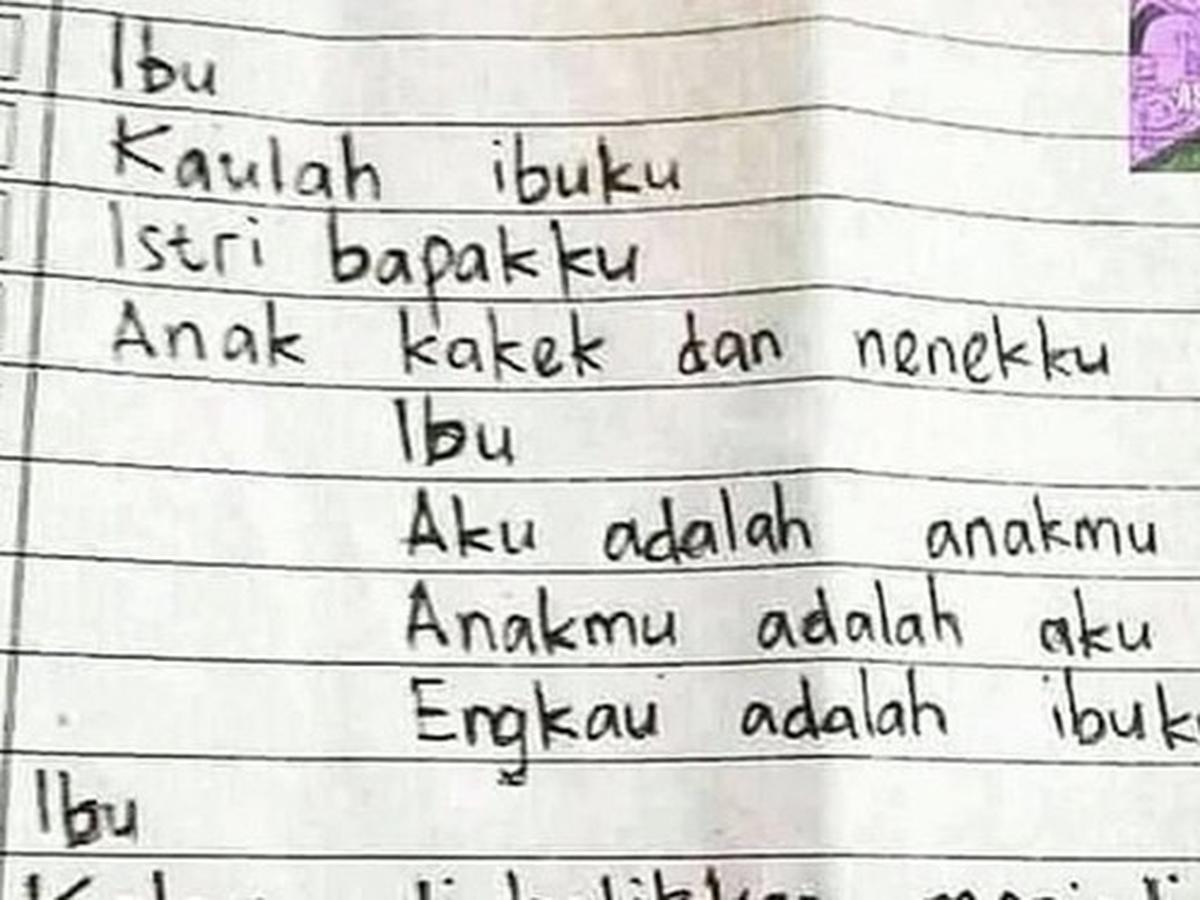 Ibu
Kaulah ibuku
Istri bapakku
Anak kakek dan nenekku
Ibu
Aku adalah anakmu
Anakmu adalah aku
Engkau adalah
Ibu